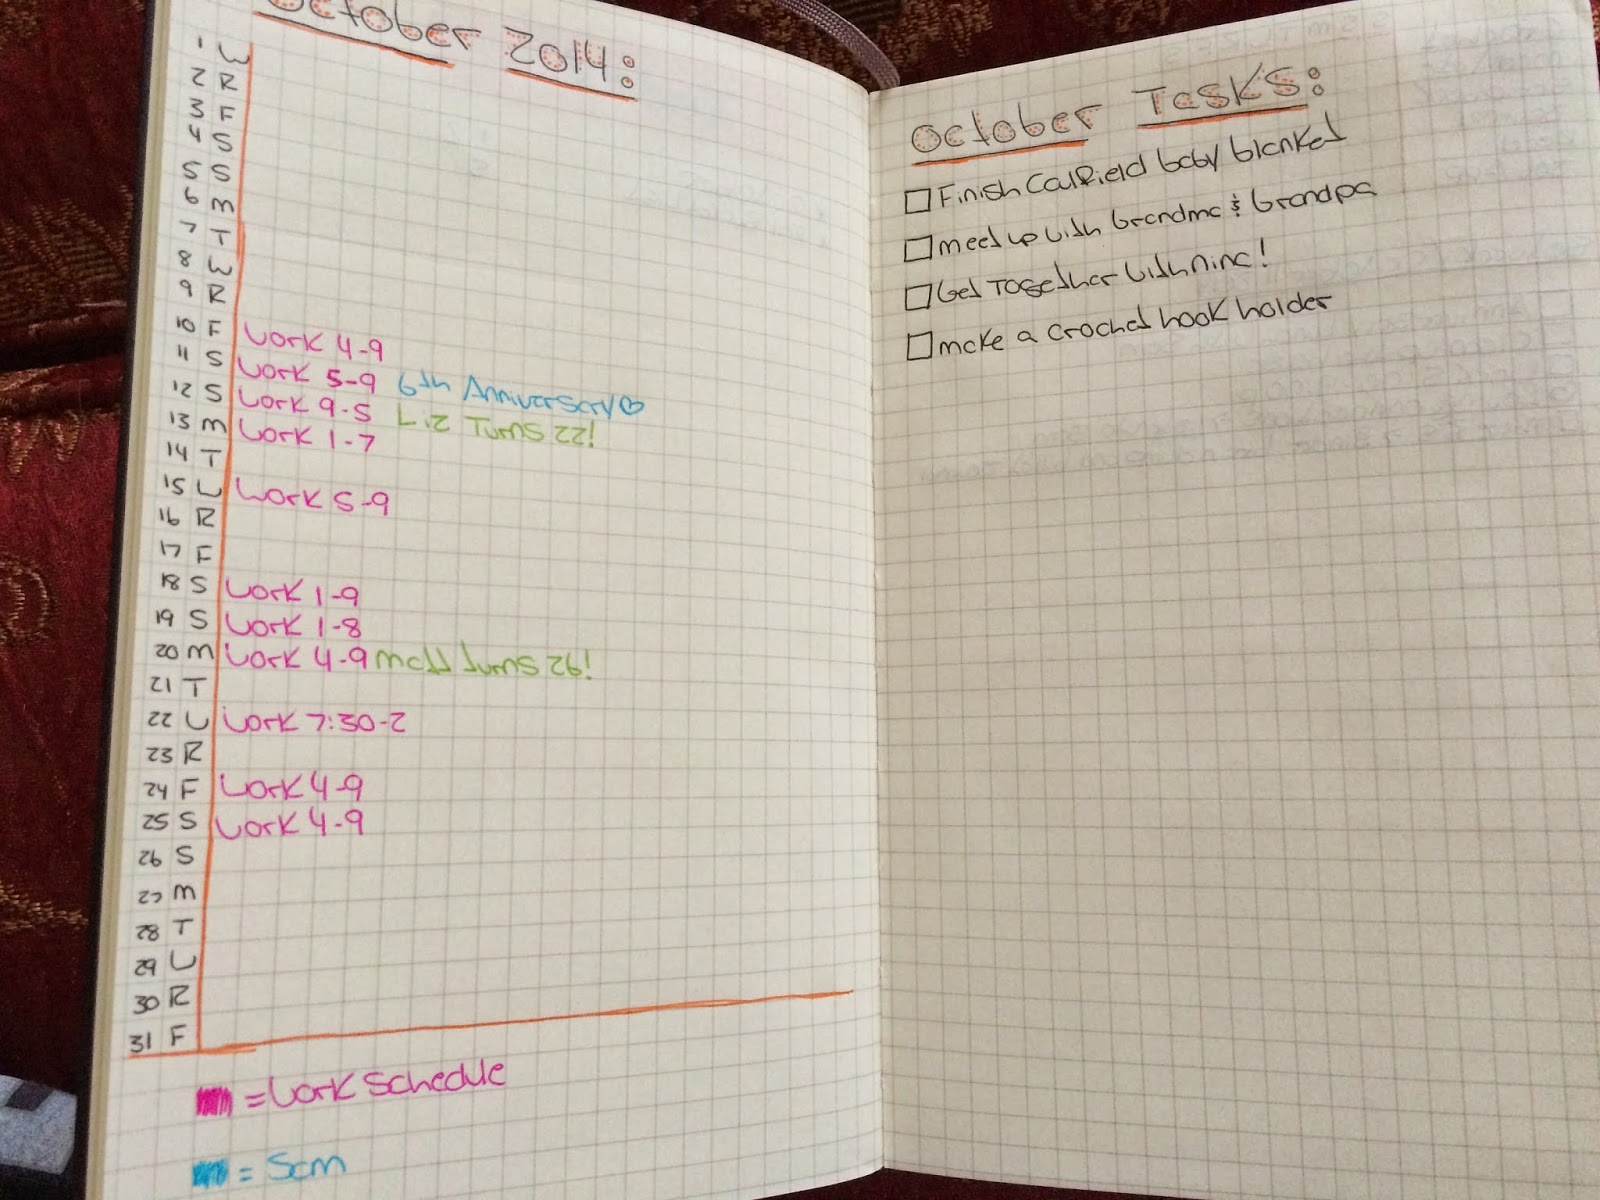 October 2014:
1 W
2 R
3 F
4 S
5 S
6 M
7 T
8 W
9 R
10 F Work 4-9
11 S Work 5-9 6th Anniversary♡
12 S Work 9-5 Liz Turns 22!
13 M Work 1-7
14 T
15 W Work 5-9
16 R
17 F
18 S Work 1-9
19 S Work 1-8
20 M Work 4-9 Matt turns 26!
21 T
22 W Work 7:30-2
23 R
24 F Work 4-9
25 S Work 4-9
26 S
27 M
28 T
29 W
30 R
31 F
= Work Schedule
= Sam
October Tasks:
Finish Caulfield baby blanket
meet up with Grandma & Grandpa
Get Together with Nina!
make a crochet hook holder